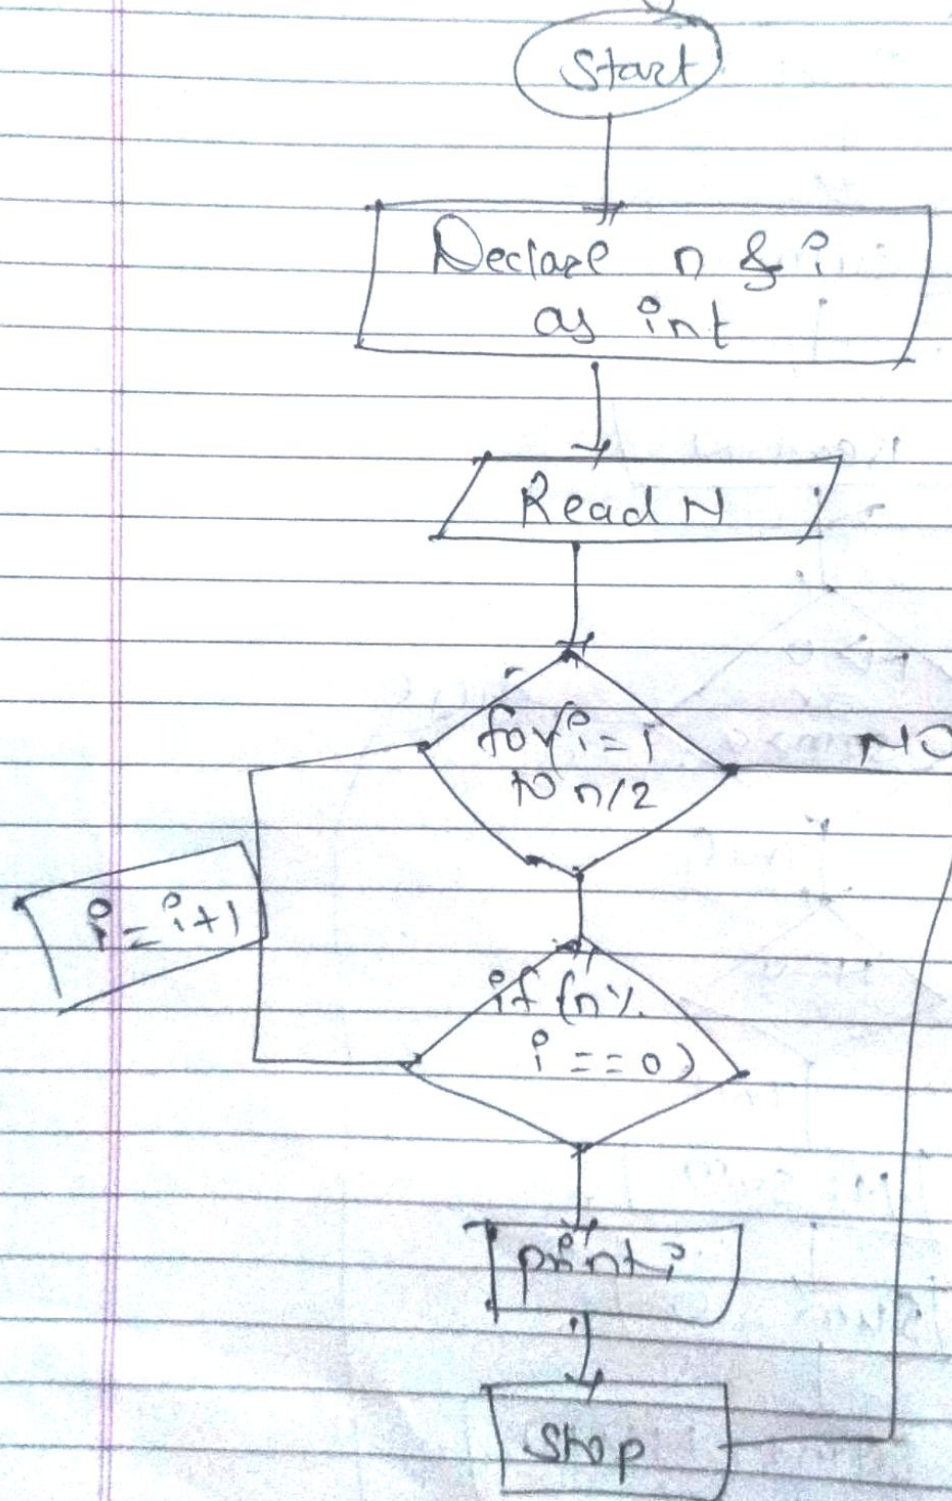 Start
Declare n & i
as int
Read N
for i = 1
to n/2
NO
i = i+1
if (n%
i == 0)
print i
Stop